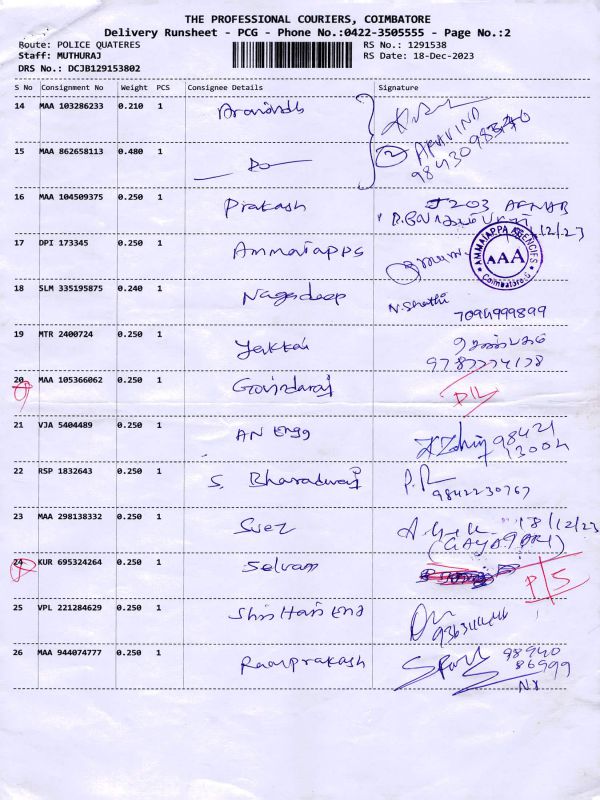 THE PROFESSIONAL COURIERS, COIMBATORE
Delivery Runsheet - PCG - Phone No.:0422-3505555 - Page No.:2
Route: POLICE QUATERES
Staff: MUTHURAJ
DRS No.: DCJB129153802
RS No.: 1291538
RS Date: 18-Dec-2023
S No Consignment No Weight PCS Consignee Details Signature
14 MAA 103286233 0.210 1 Aravindh
2 ARAVIND
15 MAA 862658113 0.480 1 — Do —
16 MAA 104509375 0.250 1 Prakash J203
17 DPI 173345 0.250 1 Ammaiapps
AMMAIAPPA AGENCIES
AAA
Coimbatore
18 SLM 335195875 0.240 1 Nagadeep N.Shathi 7094999899
19 MTR 2400724 0.250 1 Jekkai
9787774178
20 MAA 105366062 0.250 1 Govindaraj D/L
21 VJA 5404489 0.250 1 AN Engg 98421
13004
22 RSP 1832643 0.250 1 S. Bharadwaj P.R
9842230767
23 MAA 298138332 0.250 1 Suez 18/12/23
(GAYATHRI)
24 KUR 695324264 0.250 1 Selvam P/S
25 VPL 221284629 0.250 1 Shri Hari Eng
26 MAA 944074777 0.250 1 Ramprakash 98940
86999